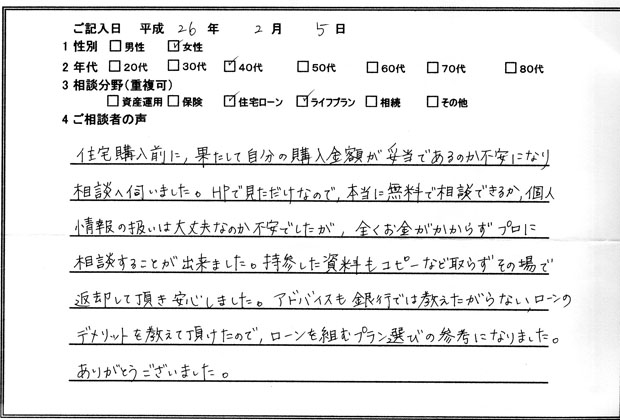 ご記入日 平成 26 年 2 月 5 日
1 性別 □男性 ☑女性
2 年代 □20代 □30代 ☑40代 □50代 □60代 □70代 □80代
3 相談分野(重複可)
□資産運用 □保険 ☑住宅ローン ☑ライフプラン □相続 □その他
4 ご相談者の声
住宅購入前に、果たして自分の購入金額が妥当であるのか不安になり
相談へ伺いました。HPで見ただけなので、本当に無料で相談できるか、個人
情報の扱いは大丈夫なのか不安でしたが、全くお金がかからずプロに
相談することが出来ました。持参した資料もコピーなど取らずその場で
返却して頂き安心しました。アドバイスも銀行では教えたがらない、ローンの
デメリットを教えて頂けたので、ローンを組むプラン選びの参考になりました。
ありがとうございました。